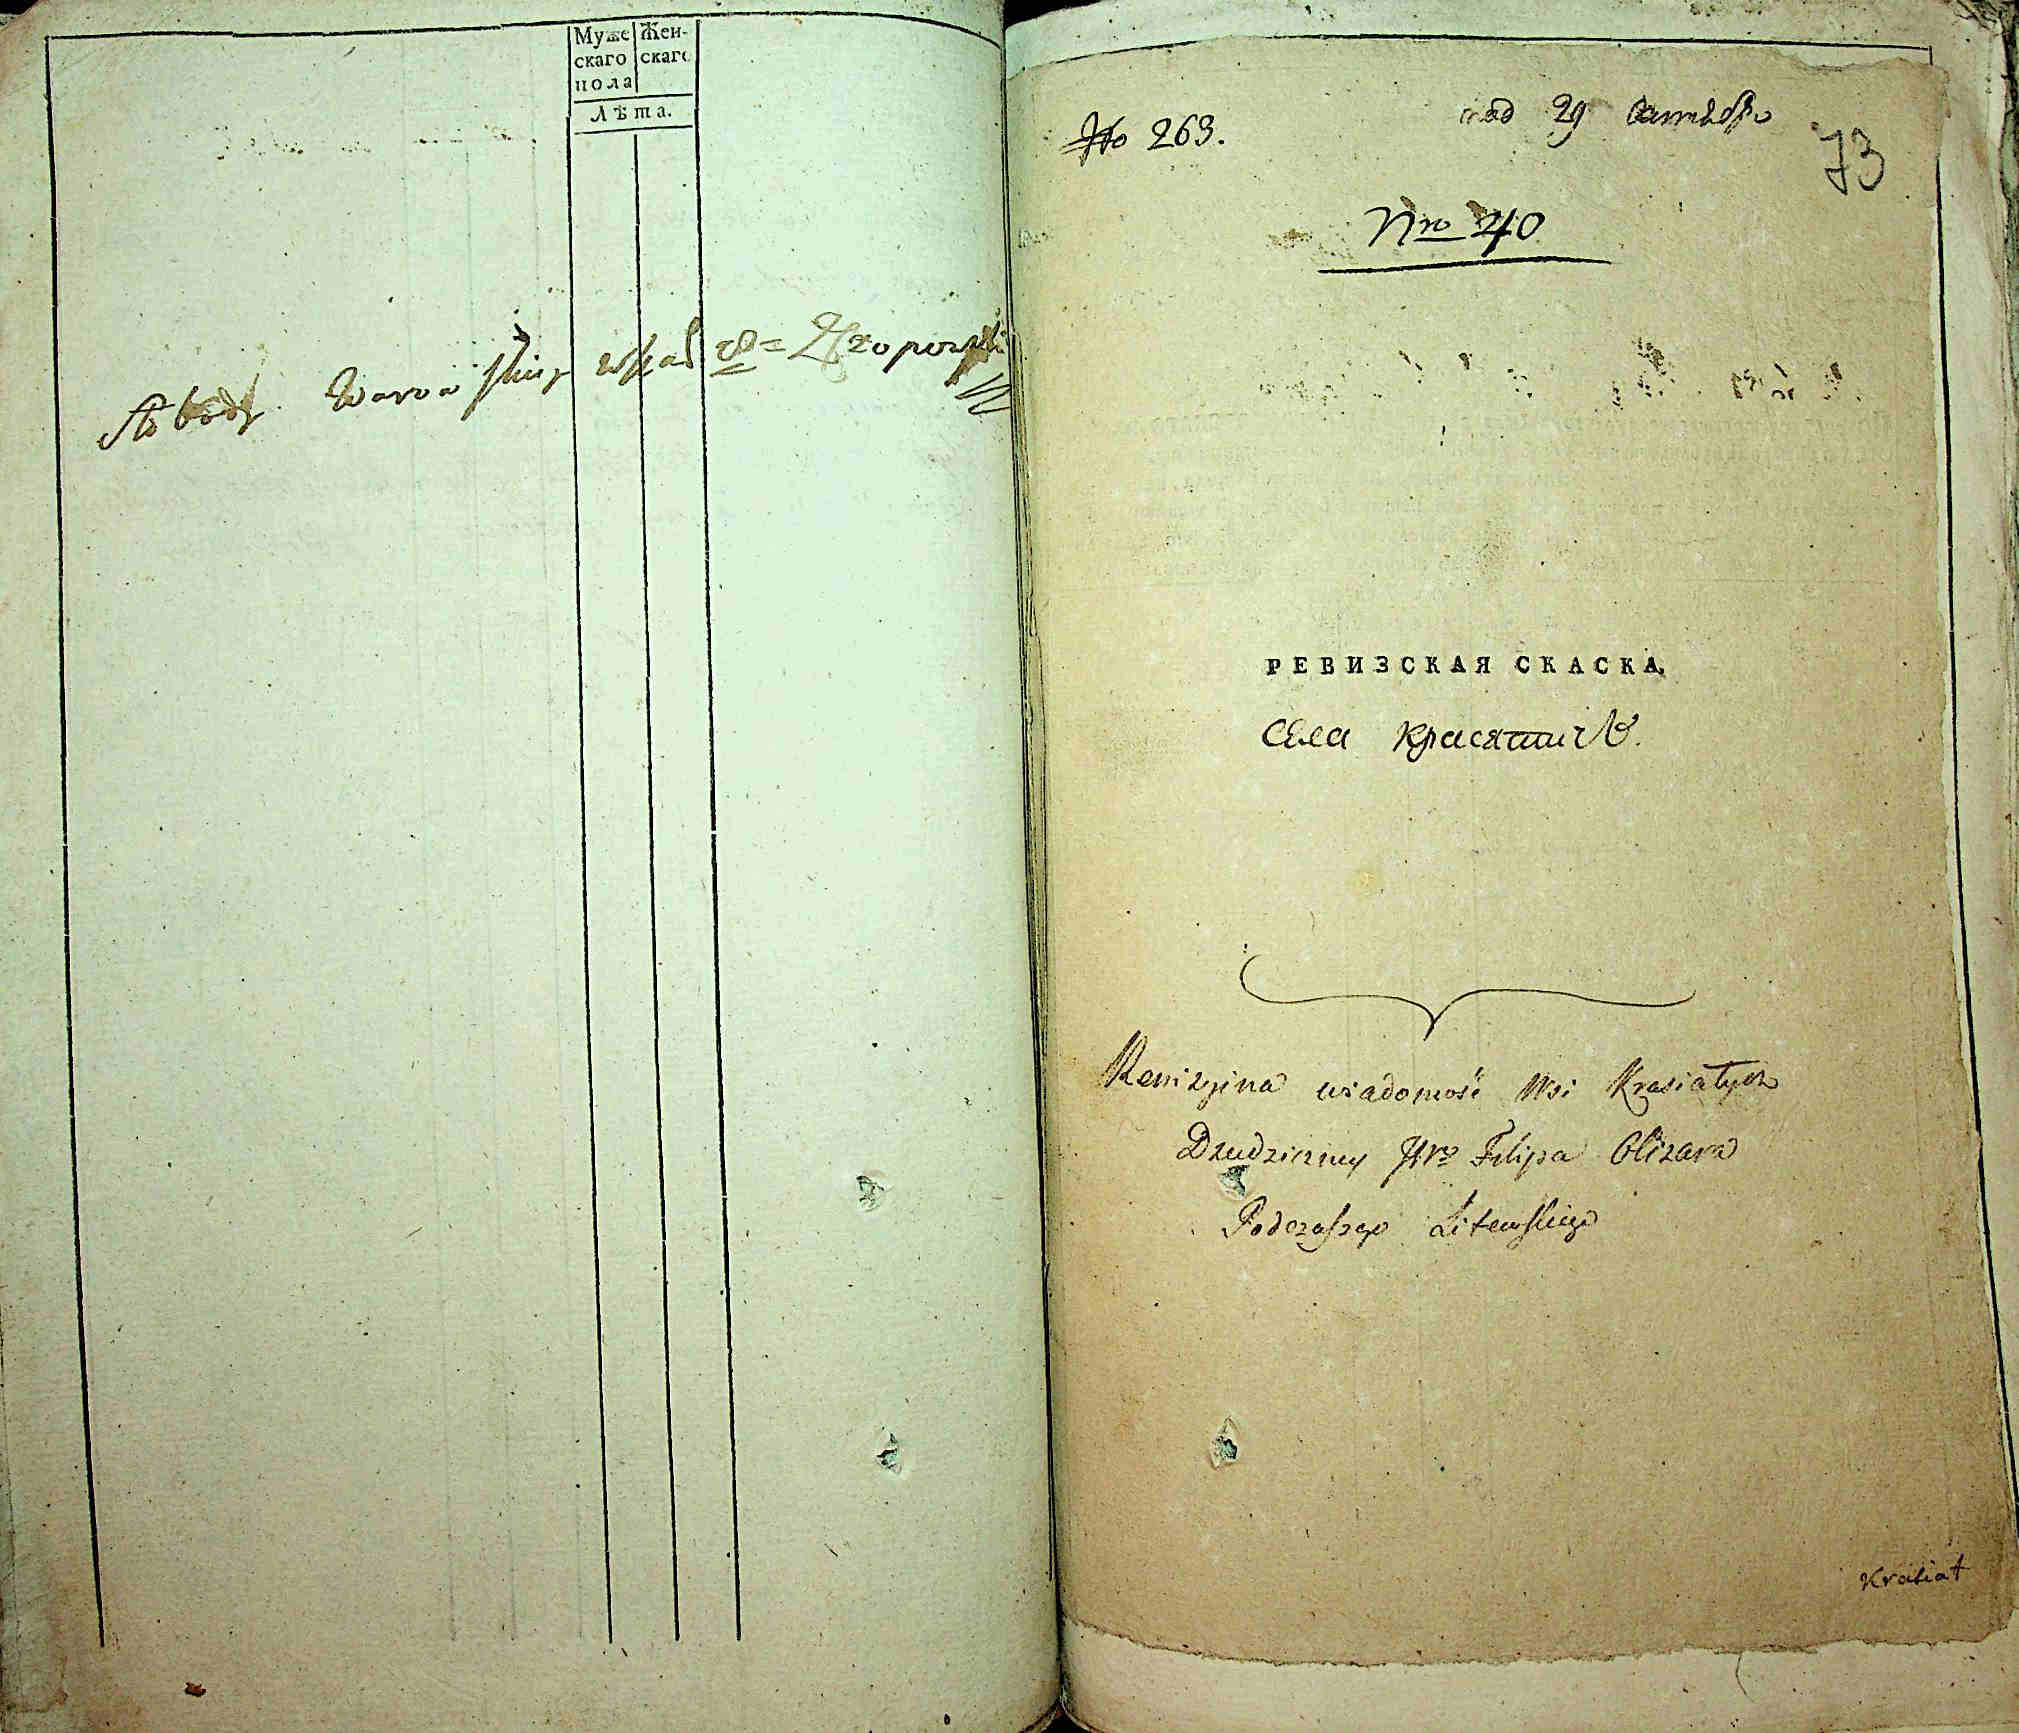 Муже Жен-
скаго скаго
пола
Лѣта.
No 263.
29
73
Nro 40
РЕВИЗСКАЯ СКАСКА,
Села Красятичъ.
Rewizyjna wiadomość Wsi Krasiatycz
Dziedzicznej JW° Filipa Olizara
Podczaszego Litewskiego
Krasiat